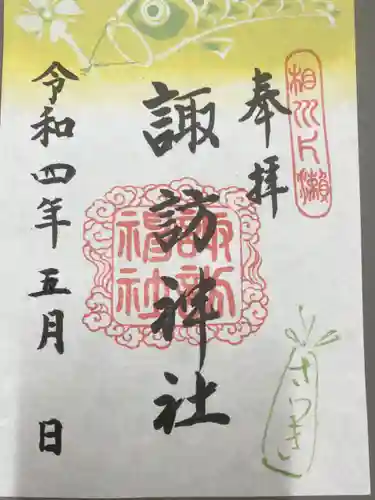 相州片瀬
奉拝
諏訪神社
諏訪神社
令和四年五月 日
さつき